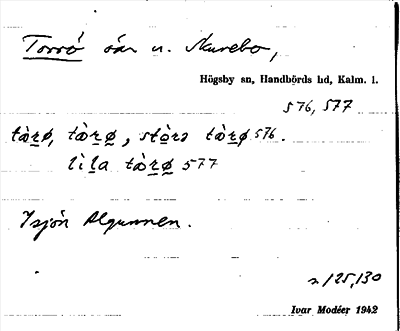 Torrö öar n. Skurebo,
Högsby sn, Handbörds hd, Kalm. l.
576, 577
tàrø, tàrø, stòra tàrø 576.
lìla tàrø 577
I sjön Algunnen.
125,130
Ivar Modéer 1942